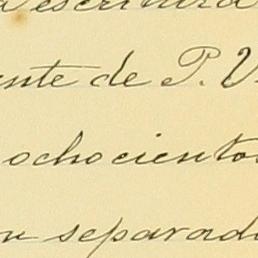 a escritura
ente de P. V.
ochocientos
separad